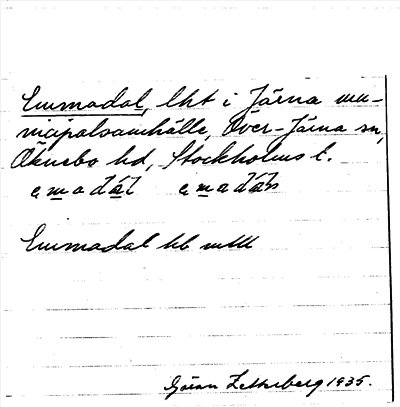 Emmadal, lht i Järna mu-
nicipalsamhälle, Över-Järna sn,
Öknebo hd, Stockholms l.
emadál emadáls
Emmadal hb mtll
Göran Zetterberg 1935.